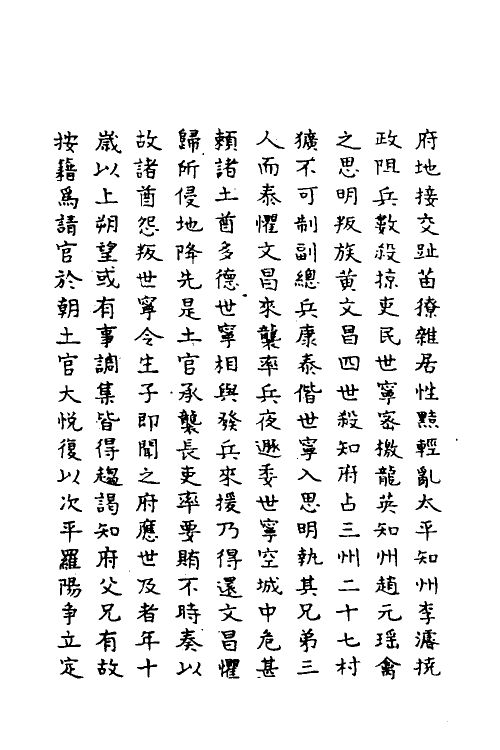 府地接交趾苗獠雜居性黠輕亂太平知州李濬撓
政阻兵數殺掠吏民世寧密檄龍英知州趙元瑶禽
之思明叛族黄文昌四世殺知府占三州二十七村
獷不可制副總兵康泰偕世寧入思明執其兄弟三
人而泰懼文昌來襲率兵夜遯委世寧空城中危甚
賴諸土酋多德世寧相與發兵來援乃得還文昌懼
歸所侵地降先是土官承襲長吏率要賄不時奏以
故諸酋怨叛世寧令生子即聞之府應世及者年十
歲以上朔望或有事調集皆得趨謁知府父兄有故
按籍爲請官於朝土官大悅復以次平羅陽爭立定